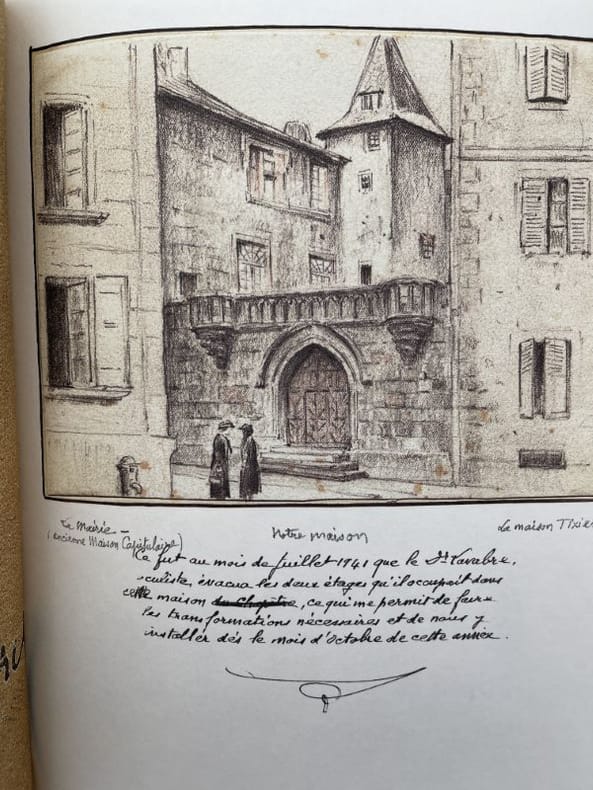 La Mairie –
(ancienne Maison Capitulaire)
Notre maison
La maison Tixier
Ce fut au mois de Juillet 1941 que le Dr Vavabre,
oculiste, évacua les deux étages qu'il occupait dans
cette maison du Chapitre, ce qui me permit de faire
les transformations nécessaires et de nous y
installer dés le mois d'Octobre de cette année.